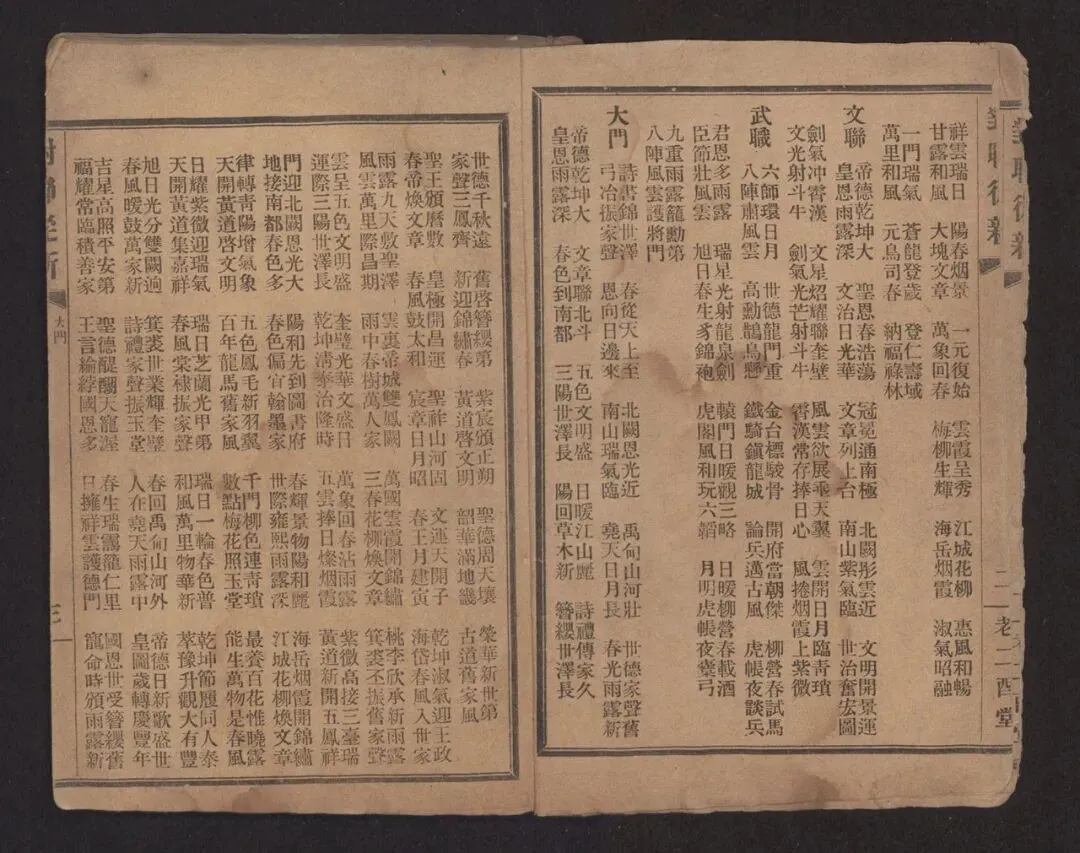 對聯從新
二
老二酉堂
祥雲瑞日 陽春烟景 一元復始 雲霞呈秀 江城花柳 惠風和暢
甘露和風 大塊文章 萬象回春 梅柳生輝 海岳烟霞 淑氣昭融
一門瑞氣 蒼龍登歲 登仁壽域
萬里和風 元鳥司春 納福祿林
文聯 帝德乾坤大 聖恩春浩蕩 冠冕通南極 北闕彤雲近 文明開景運
皇恩雨露深 文治日光華 文章列上台 南山紫氣臨 世治奮宏圖
劍氣冲霄漢 文星炤耀聯奎壁 風雲欲展乘天翼 雲開日月臨青瑣
文光射斗牛 劍氣光芒射斗牛 霄漢常存捧日心 風捲烟霞上紫微
武職 六師環日月 世德龍門重 金台標駿骨 開府當朝傑 柳營春試馬
八陣肅風雲 高勳鵲鳥懸 鐵騎鎮龍城 論兵邁古風 虎帳夜談兵
君恩多雨露 瑞星光射龍泉劍 轅門日暖觀三略 日暖柳營春載酒
臣節壯風雲 旭日春生豸錦袍 虎閣風和玩六韜 月明虎帳夜櫜弓
九重雨露龍勳第
八陣風雲護將門
大門 詩書錦世澤 春從天上至 北闕恩光近 禹甸山河壯 世德家聲舊
弓冶振家聲 恩向日邊來 南山瑞氣臨 堯天日月長 春光雨露新
帝德乾坤大 文章聯北斗 五色文明盛 日暖江山麗 詩禮傳家久
皇恩雨露深 春色到南都 三陽世澤長 陽回草木新 簪纓世澤長
世德千秋遠 舊啓簪纓第 紫宸頒正朔 聖德周天壤 榮華新世第
家聲三鳳齊 新迎錦繡春 黃道啓文明 韶華滿地畿 古道舊家風
聖王頒曆數 皇極開昌運 聖祚山河固 文運天開子 乾坤淑氣迎王政
春帝煥文章 春風鼓太和 宸章日月昭 春王月建寅 海岱春風入世家
雨露九天敷聖澤 雲裏帝城雙鳳闕 萬國雲霞開錦繡 桃李欣承新雨露
風雲萬里際昌期 雨中春樹萬人家 三春花柳煥文章 箕裘丕振舊家聲
雲呈五色文明盛 奎璧光華文盛日 萬象回春沾雨露 紫微高接三臺瑞
運際三陽世澤長 乾坤淸泰治隆時 五雲捧日燦烟霞 黃道新開五鳳祥
門迎北闕恩光大 陽和先到圖書府 春輝景物陽和麗 海岳烟霞開錦繡
地接南都春色多 春色偏宜翰墨家 世際雍熙雨露深 江城花柳煥文章
律轉青陽增氣象 五色鳳毛新羽翼 千門柳色連靑瑣 最養百花惟曉露
天開黃道啓文明 百年龍馬舊家風 數點梅花照玉堂 能生萬物是春風
日耀紫微迎瑞氣 瑞日芝蘭光甲第 瑞日一輪春色普 乾坤節履同人泰
天開黃道集嘉祥 春風棠棣振家聲 和風萬里物華新 萃豫升觀大有豐
旭日光分雙闕逈 箕裘世業輝奎璧 春回禹甸山河外 帝德日新歌盛世
春風暖鼓萬家新 詩禮家聲振玉堂 人在堯天雨露中 皇圖歲轉慶豐年
吉星高照平安第 聖德醍醐天寵渥 春生瑞靄籠仁里 國恩世受簪纓舊
福耀常臨積善家 王言綸綍國恩多 日擁祥雲護德門 寵命時頒雨露新
大門
三